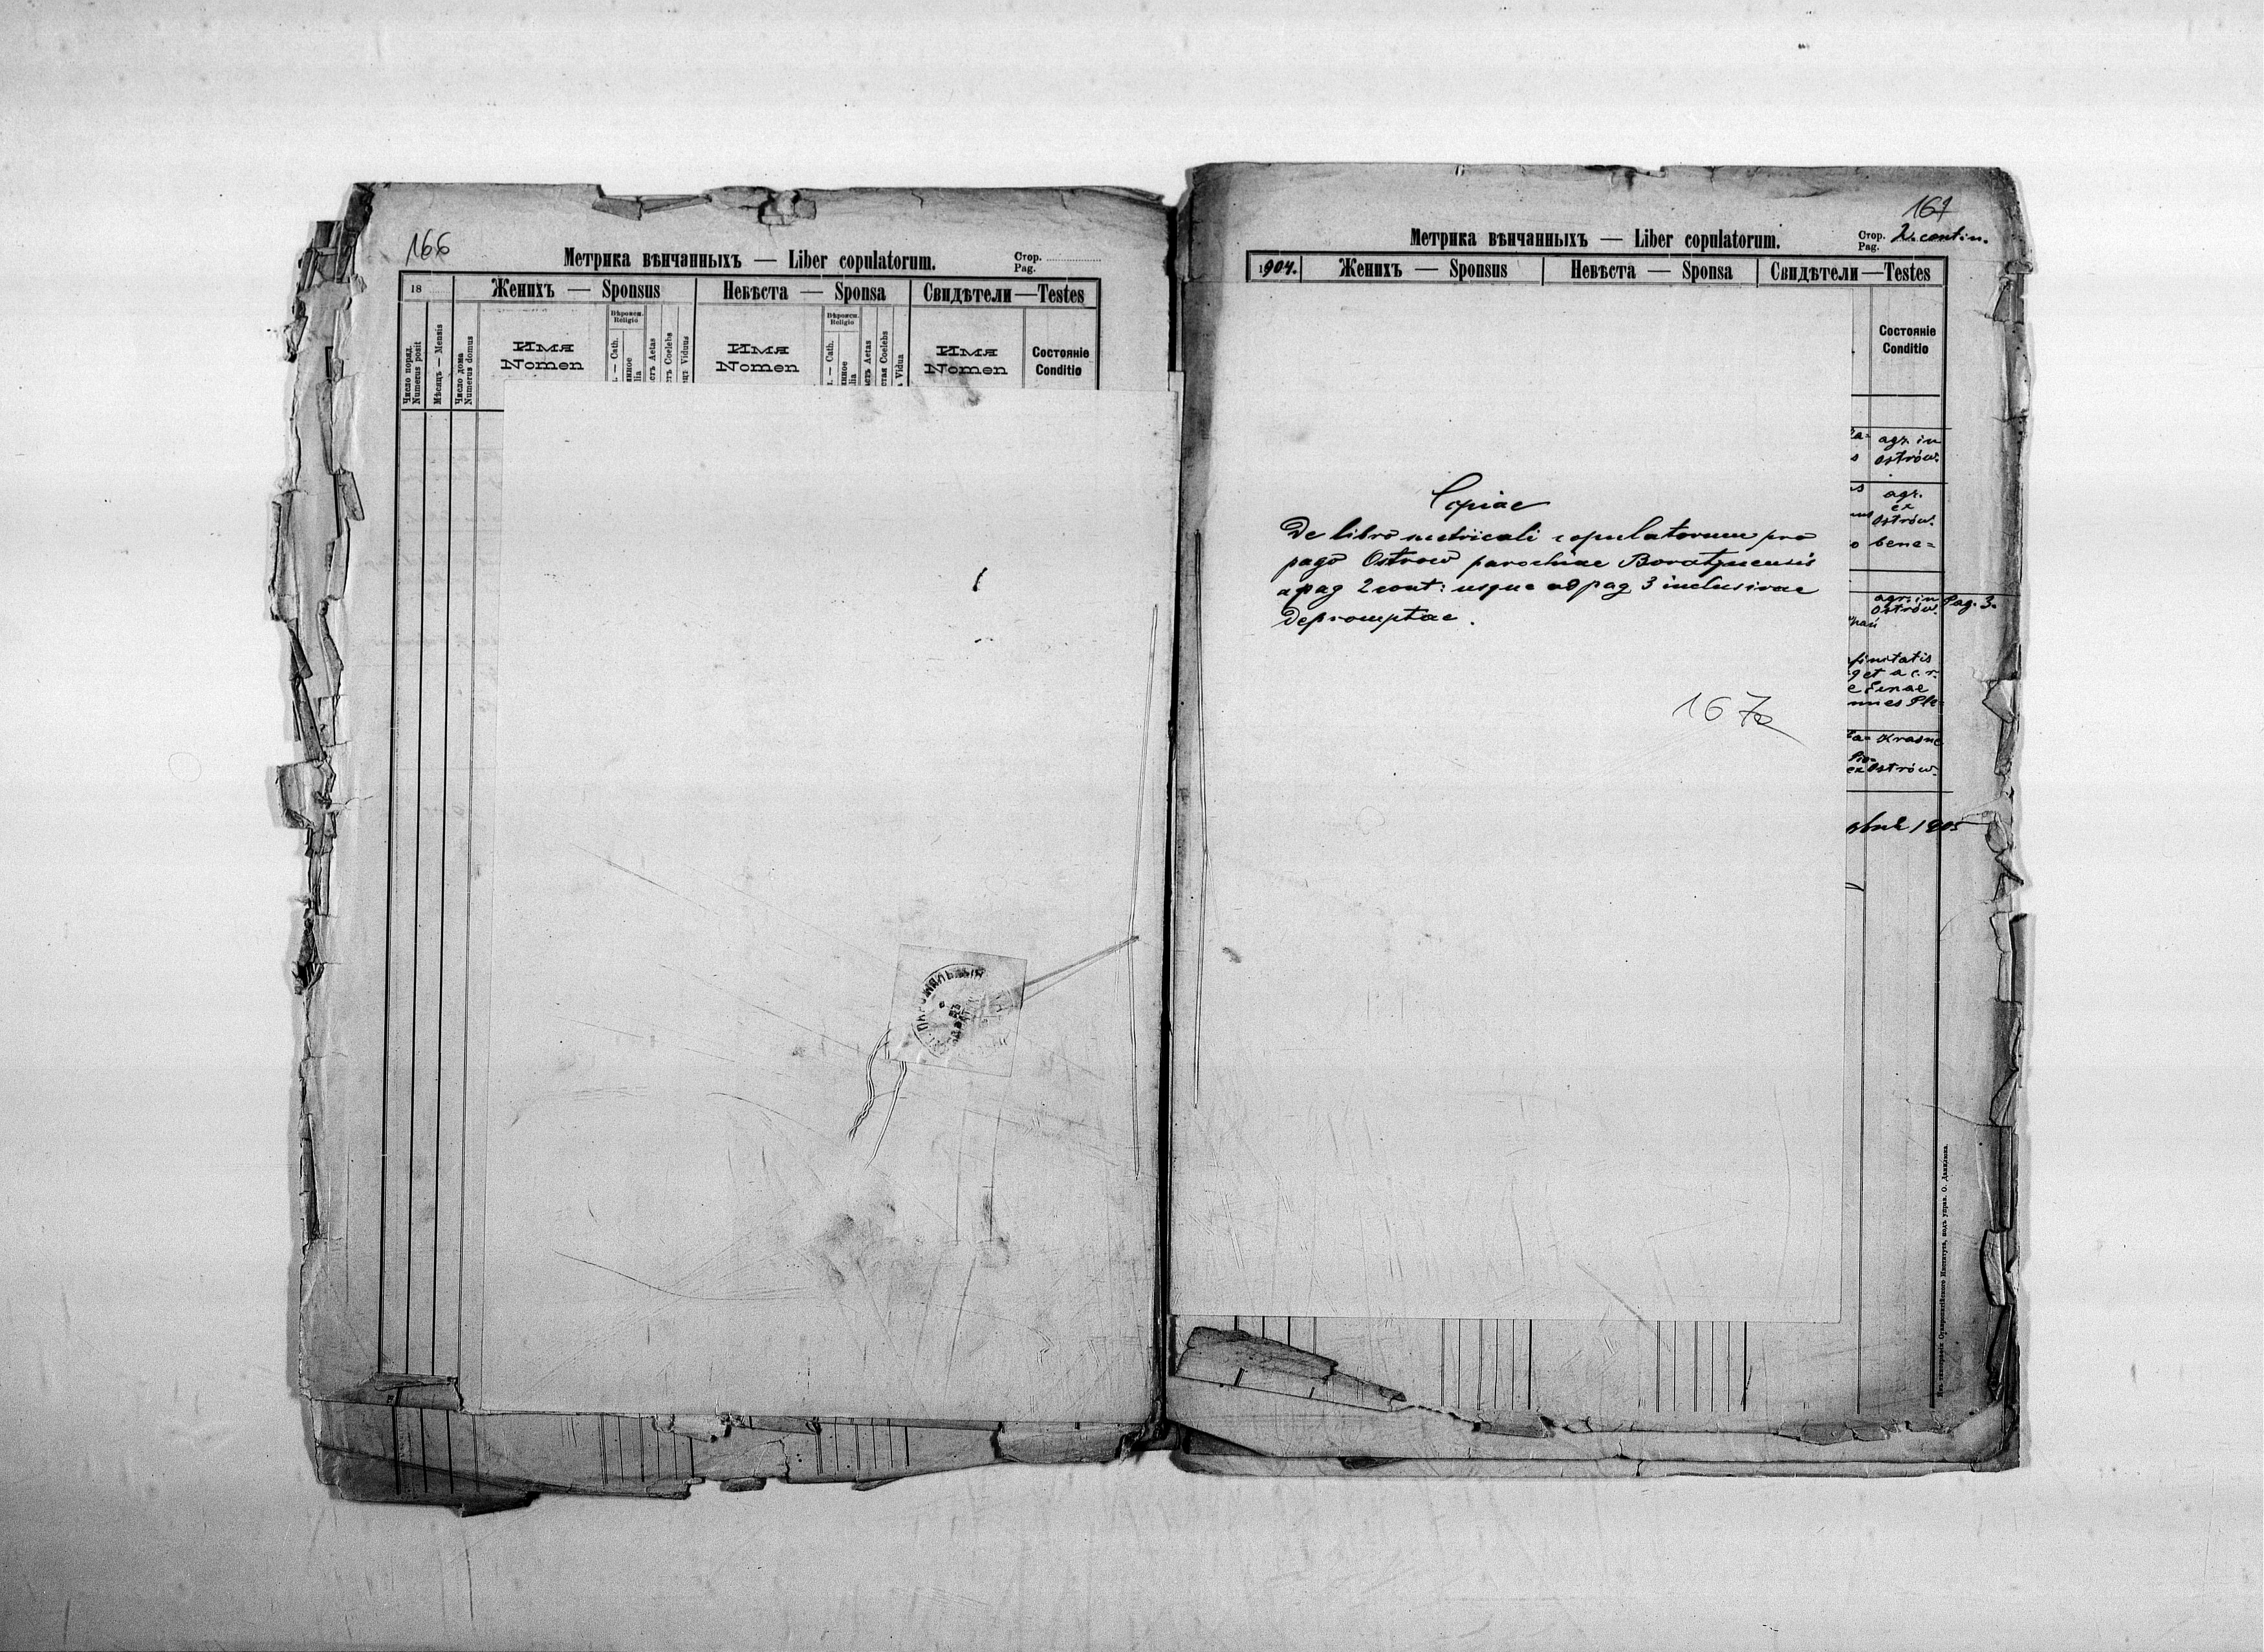 166
Метрика вѣнчанныхъ — Liber copulatorum.
Стор.
Pag.
18
Женихъ — Sponsus
Невѣста — Sponsa
Свидѣтели — Testes
Число поряд.
Numerus posit
Мѣсяцъ — Mensis
Число дома
Numerus domus
Имя
Nomen
Religio
Cath.
Aetas
Coelebs
Viduus
Имя
Nomen
Religio
Cath.
Aetas
Coelebs
Vidua
Имя
Nomen
Состояніе
Conditio
167
Метрика вѣнчанныхъ — Liber copulatorum.
Стор.
Pag.
2. contin.
1904.
Женихъ — Sponsus
Невѣста — Sponsa
Свидѣтели — Testes
Состояніе
Conditio
agr. in
Ostrów.
agr.
ex
Ostrów.
bene=
agr. in
Ostrów.
Pag. 3.
Krasne
Ostrów.
1905
Copiae
De libro metricali copulatorum pro
pago Ostrow parochiae Boratynensis
a pag 2 cont: usque ad pag 3 inclusivae
depromptae.
167a